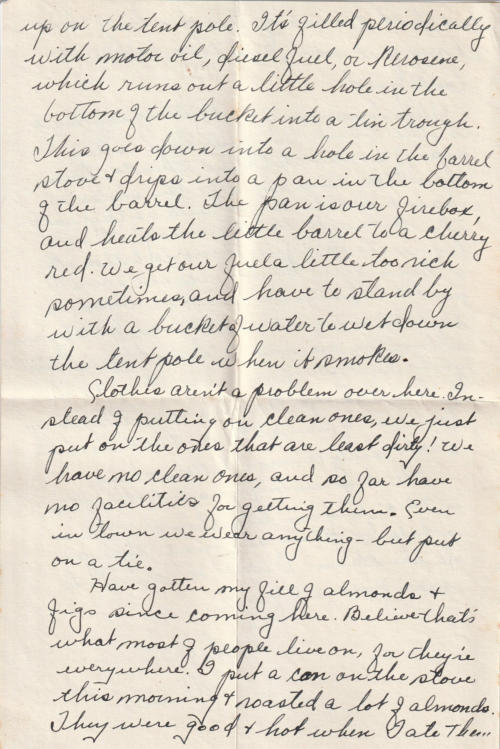 up on the tent pole. It's filled periodically
with motor oil, diesel fuel, or kerosene,
which runs out a little hole in the
bottom of the bucket into a tin trough.
This goes down into a hole in the barrel
stove & drips into a pan in the bottom
of the barrel. The pan is our firebox,
and heats the little barrel to a cherry
red. We get our fuel a little too rich
sometimes, and have to stand by
with a bucket of water to wet down
the tent pole when it smokes.
Clothes aren't a problem over here. In-
stead of putting on clean ones, we just
put on the ones that are least dirty! We
have no clean ones, and so far have
no facilities for getting them. Even
in town we wear anything - but put
on a tie.
Have gotten my fill of almonds &
figs since coming here. Believe that's
what most of people live on, for they're
everywhere. I put a can on the stove
this morning & roasted a lot of almonds.
They were good & hot when I ate them..